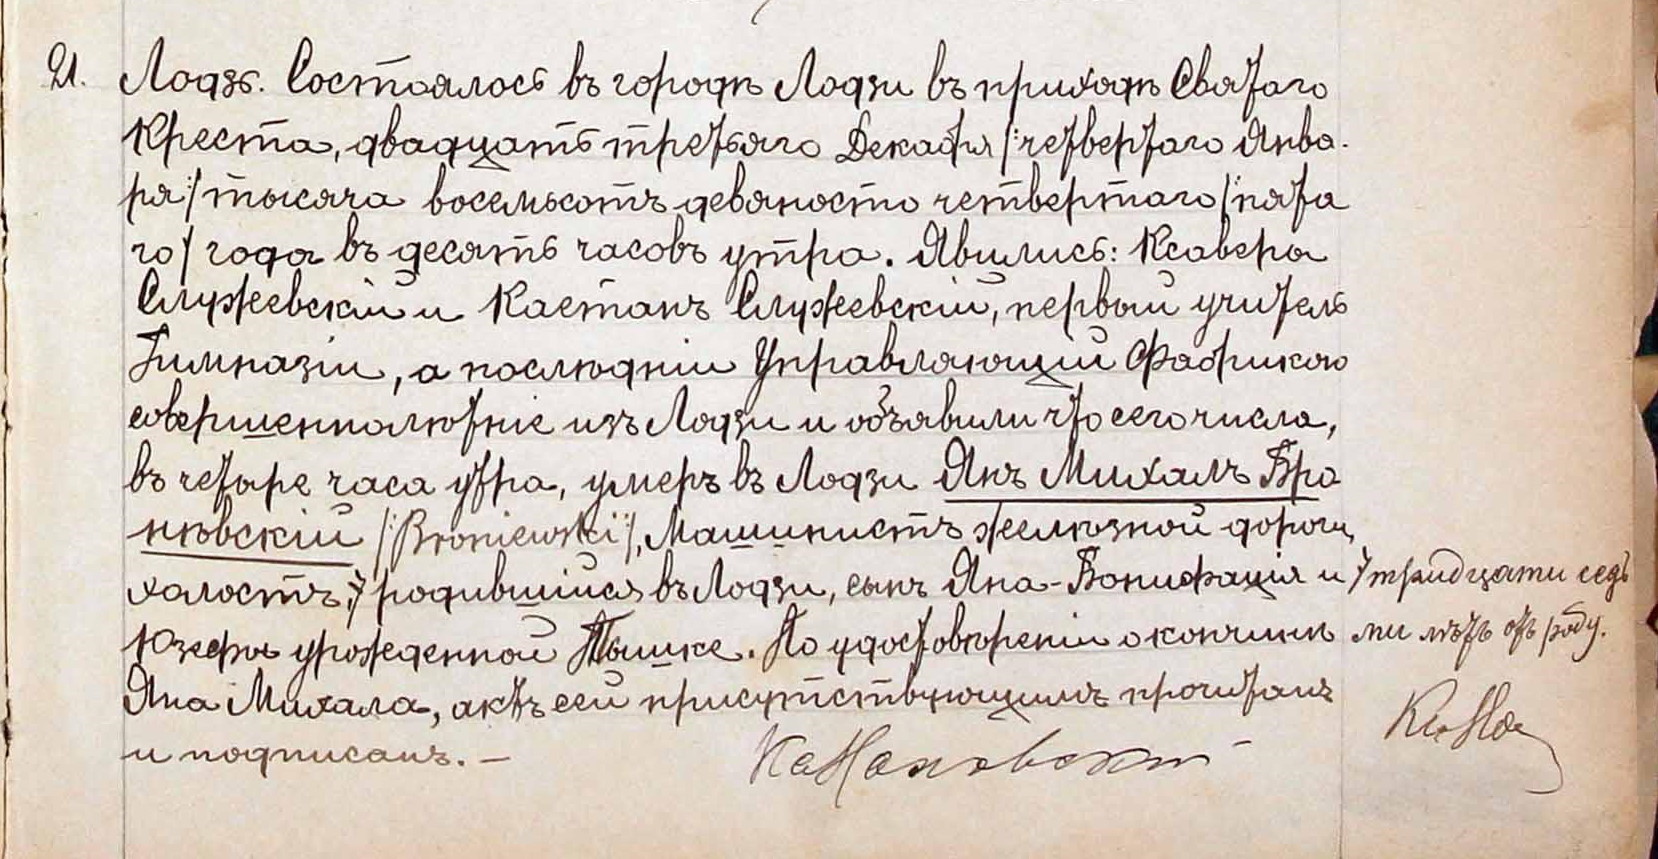 21. Лодзь. Состоялось въ городѣ Лодзи въ приходѣ Святаго
Креста, двадцать третьяго Декабря /:четвертаго Янва-
ря:/ тысяча восемьсотъ девяносто четвертаго /:пята
го/ года въ десять часовъ утра. Явились: Ксаверы
Служевскій и Каетанъ Служевскій, первый учитель
Гимназіи, а послѣдній Управляющій Фабрикою
совершеннолѣтніе изъ Лодзи и объявили что сего числа,
въ четыре часа утра, умеръ въ Лодзи Янъ Михалъ Бро
нѣвскій /:Broniewski:/, Машинистъ желѣзной дороги,
холостъ, родившійся въ Лодзи, сынъ Яна-Бонифація и
тридцати седь
Юзефы урожденной Тышке. По удостовѣреніи о кончинѣ
ми лѣтъ отъ роду.
Яна Михала, актъ сей присутствующимъ прочитанъ
и подписанъ. —